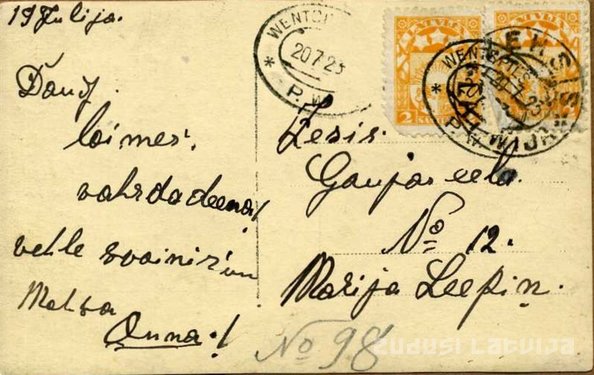 19 Julija.
Dauz
laimes!
vahrdadeena!
vehle svainis un
Mahsa
Anna!
WENTSPILS
20 7 23
P.W.
LATVIJA
2
Zesis.
Gaujas eela.
No 12.
Marija Leepiņ.
No 98
ZUDUSĪ LATVIJA